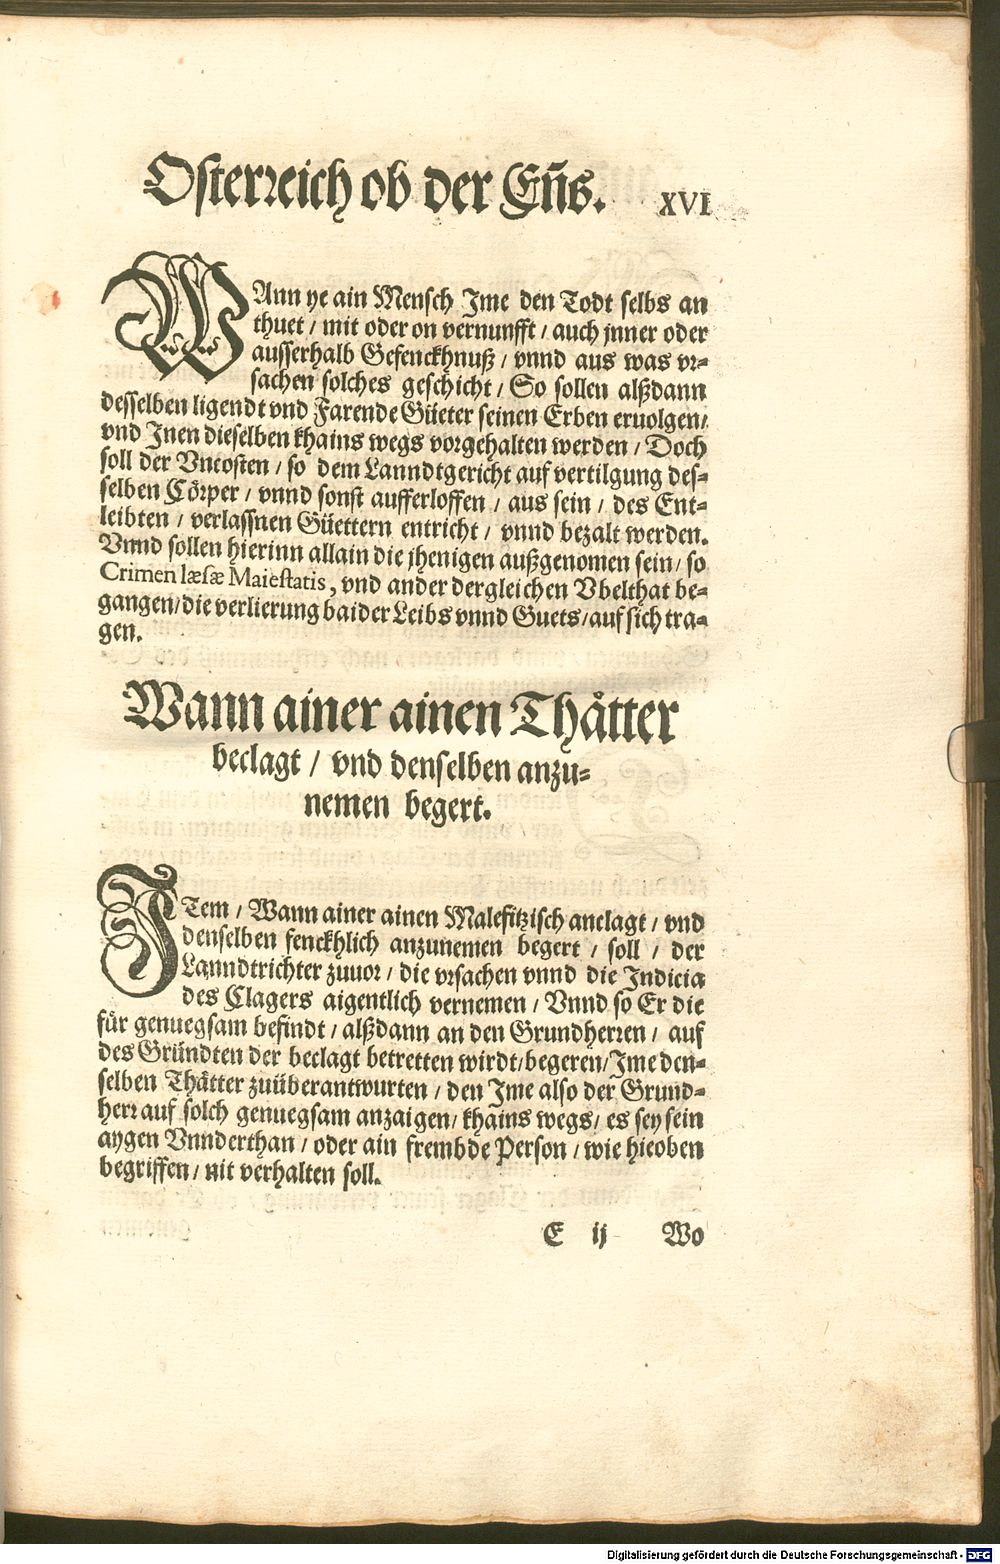 Osterreich ob der Eñs. XVI
WAnn ye ain Mensch Jme den Todt selbs an
thuet / mit oder on vernunfft / auch jnner oder
ausserhalb Gefenckhnuß / vnnd aus was vr⸗
sachen solches geschicht / So sollen alßdann
desselben ligendt vnd Farende Güeter seinen Erben eruolgen /
vnd Jnen dieselben khains wegs vorgehalten werden / Doch
soll der Vncosten / so dem Lanndtgericht auf vertilgung des⸗
selben Cörper / vnnd sonst aufferloffen / aus sein / des Ent⸗
leibten / verlassnen Güettern entricht / vnnd bezalt werden.
Vnnd sollen hierinn allain die jhenigen außgenomen sein / so
Crimen læsæ Maiestatis, vnd ander dergleichen Vbelthat be⸗
gangen / die verlierung baider Leibs vnnd Guets / auf sich tra⸗
gen.
Wann ainer ainen Thåtter
beclagt / vnd denselben anzu⸗
nemen begert.
JTem / Wann ainer ainen Malefitzisch anclagt / vnd
denselben fenckhlich anzunemen begert / soll / der
Lanndtrichter zuuor / die vrsachen vnnd die Jndicia
des Clagers aigentlich vernemen / Vnnd so Er die
für genuegsam befindt / alßdann an den Grundherren / auf
des Gründten der beclagt betretten wirdt / begeren / Jme den⸗
selben Thåtter zuüberantwurten / den Jme also der Grund⸗
herr auf solch genuegsam anzaigen / khains wegs / es sey sein
aygen Vnnderthan / oder ain frembde Person / wie hieoben
begriffen / nit verhalten soll.
E ij Wo
Digitalisierung gefördert durch die Deutsche Forschungsgemeinschaft - DFG